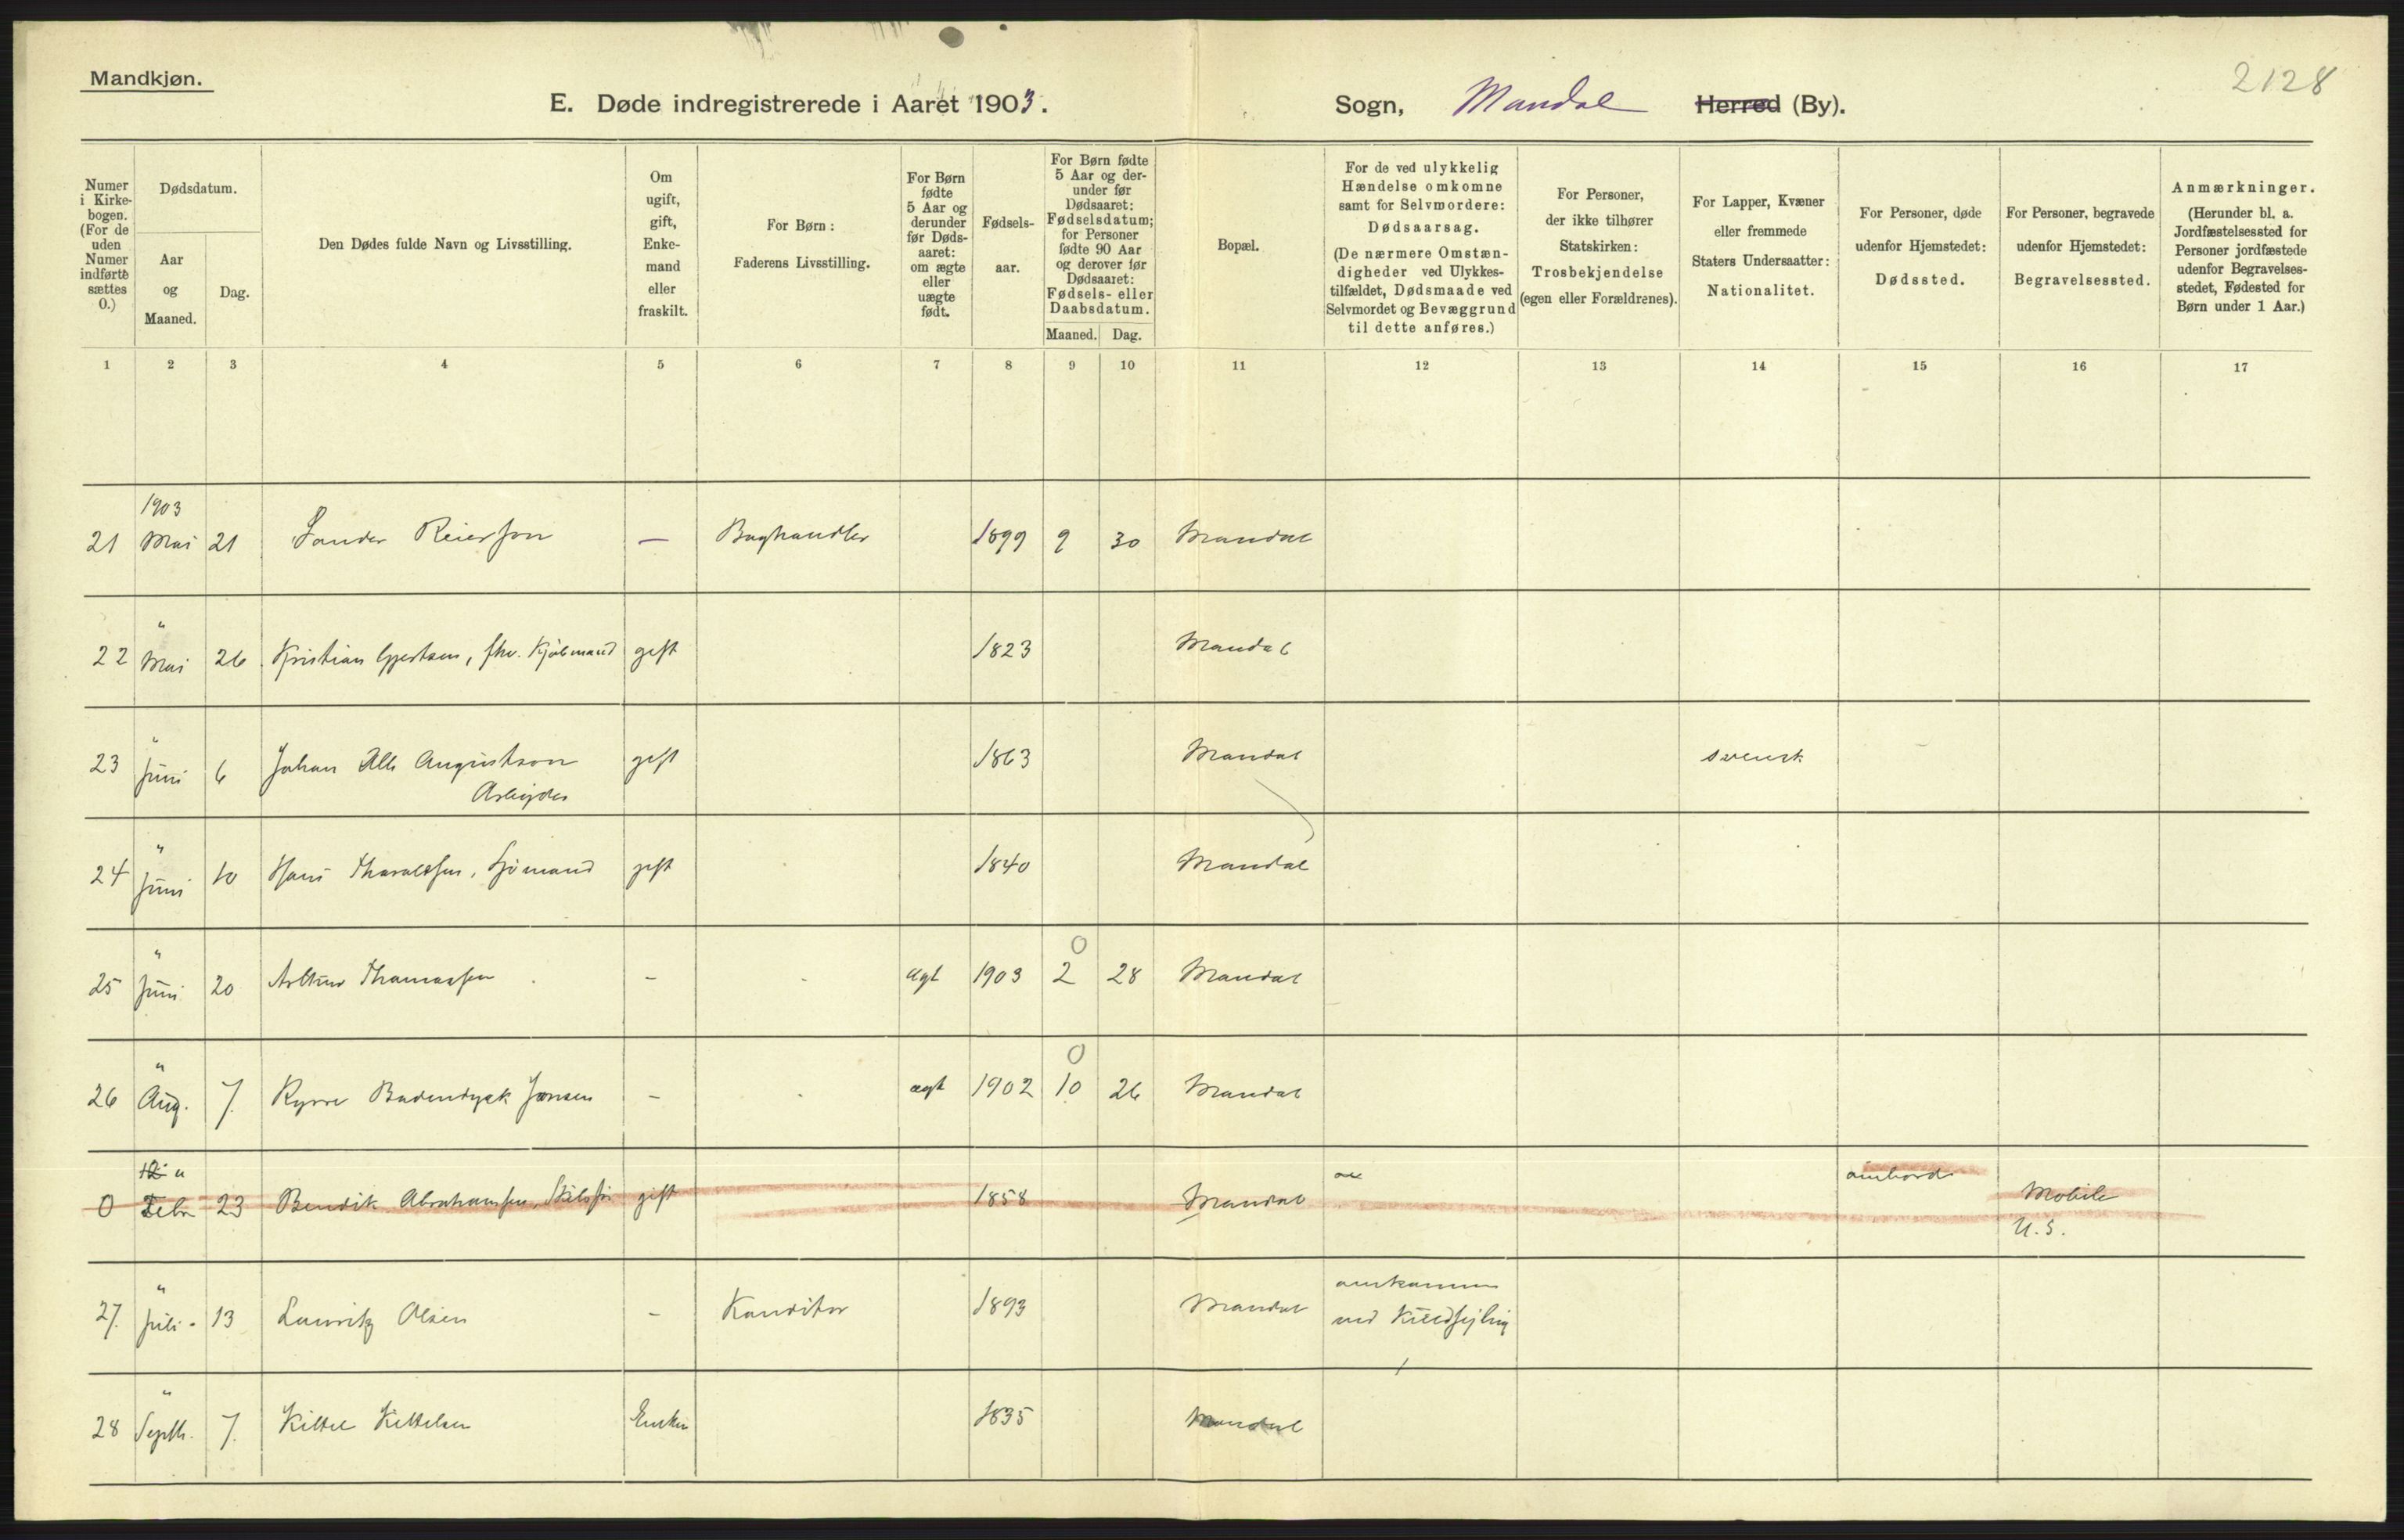 Mandkjøn.
2128
E. Døde indregistrerede i Aaret 1903. Sogn, Mandal Herred (By).
Numer i Kirkebogen. (For de uden Numer indførte sættes 0.)
Dødsdatum.
Aar og Maaned.
Dag.
Den Dødes fulde Navn og Livsstilling.
Om ugift, gift, Enkemand eller fraskilt.
For Børn: Faderens Livsstilling.
For Børn fødte 5 Aar og derunder før Dødsaaret: om ægte eller uægte født.
Fødselsaar.
For Børn fødte 5 Aar og derunder før Dødsaaret: Fødselsdatum; for Personer fødte 90 Aar og derover før Dødsaaret: Fødsels- eller Daabsdatum.
Maaned. Dag.
Bopæl.
For de ved ulykkelig Hændelse omkomne samt for Selvmordere: Dødsaarsag. (De nærmere Omstændigheder ved Ulykkestilfældet, Dødsmaade ved Selvmordet og Bevæggrund til dette anføres.)
For Personer, der ikke tilhører Statskirken: Trosbekjendelse (egen eller Forældrenes).
For Lapper, Kvæner eller fremmede Staters Undersaatter: Nationalitet.
For Personer, døde udenfor Hjemstedet: Dødssted.
For Personer, begravede udenfor Hjemstedet: Begravelsessted.
Anmærkninger. (Herunder bl. a. Jordfæstelsessted for Personer jordfæstede udenfor Begravelsesstedet, Fødested for Børn under 1 Aar.)
1 2 3 4 5 6 7 8 9 10 11 12 13 14 15 16 17
1903
21 Mai 21 Sander Reierson — Boghandler 1899 9 30 Mandal
"
22 Mai 26 Kristian Gjertsen, fhv. Kjøbmand gift 1823 Mandal
"
23 Juni 6 Johan Alb Augustson gift 1863 Mandal svensk
Arbeider
"
24 Juni 10 Hans Tharaldsen, Sjømand gift 1840 Mandal
" 0
25 Juni 20 Arthur Thomassen - - ægt 1903 2 28 Mandal
" 0
26 Aug. 7. Bodendyck Jensen - - ægt 1902 10 26 Mandal
"
0 Febr 23 Bendik Abrahamsen, gift 1858 Mandal ombord Mobile
U.S.
" omkommen
27. Juli 13 Lauritz Olsen - Konditor 1893 Mandal ved Kuldsejling
"
28 Septb. 7. Kittel Kittelsen Enkem 1835 Mandal